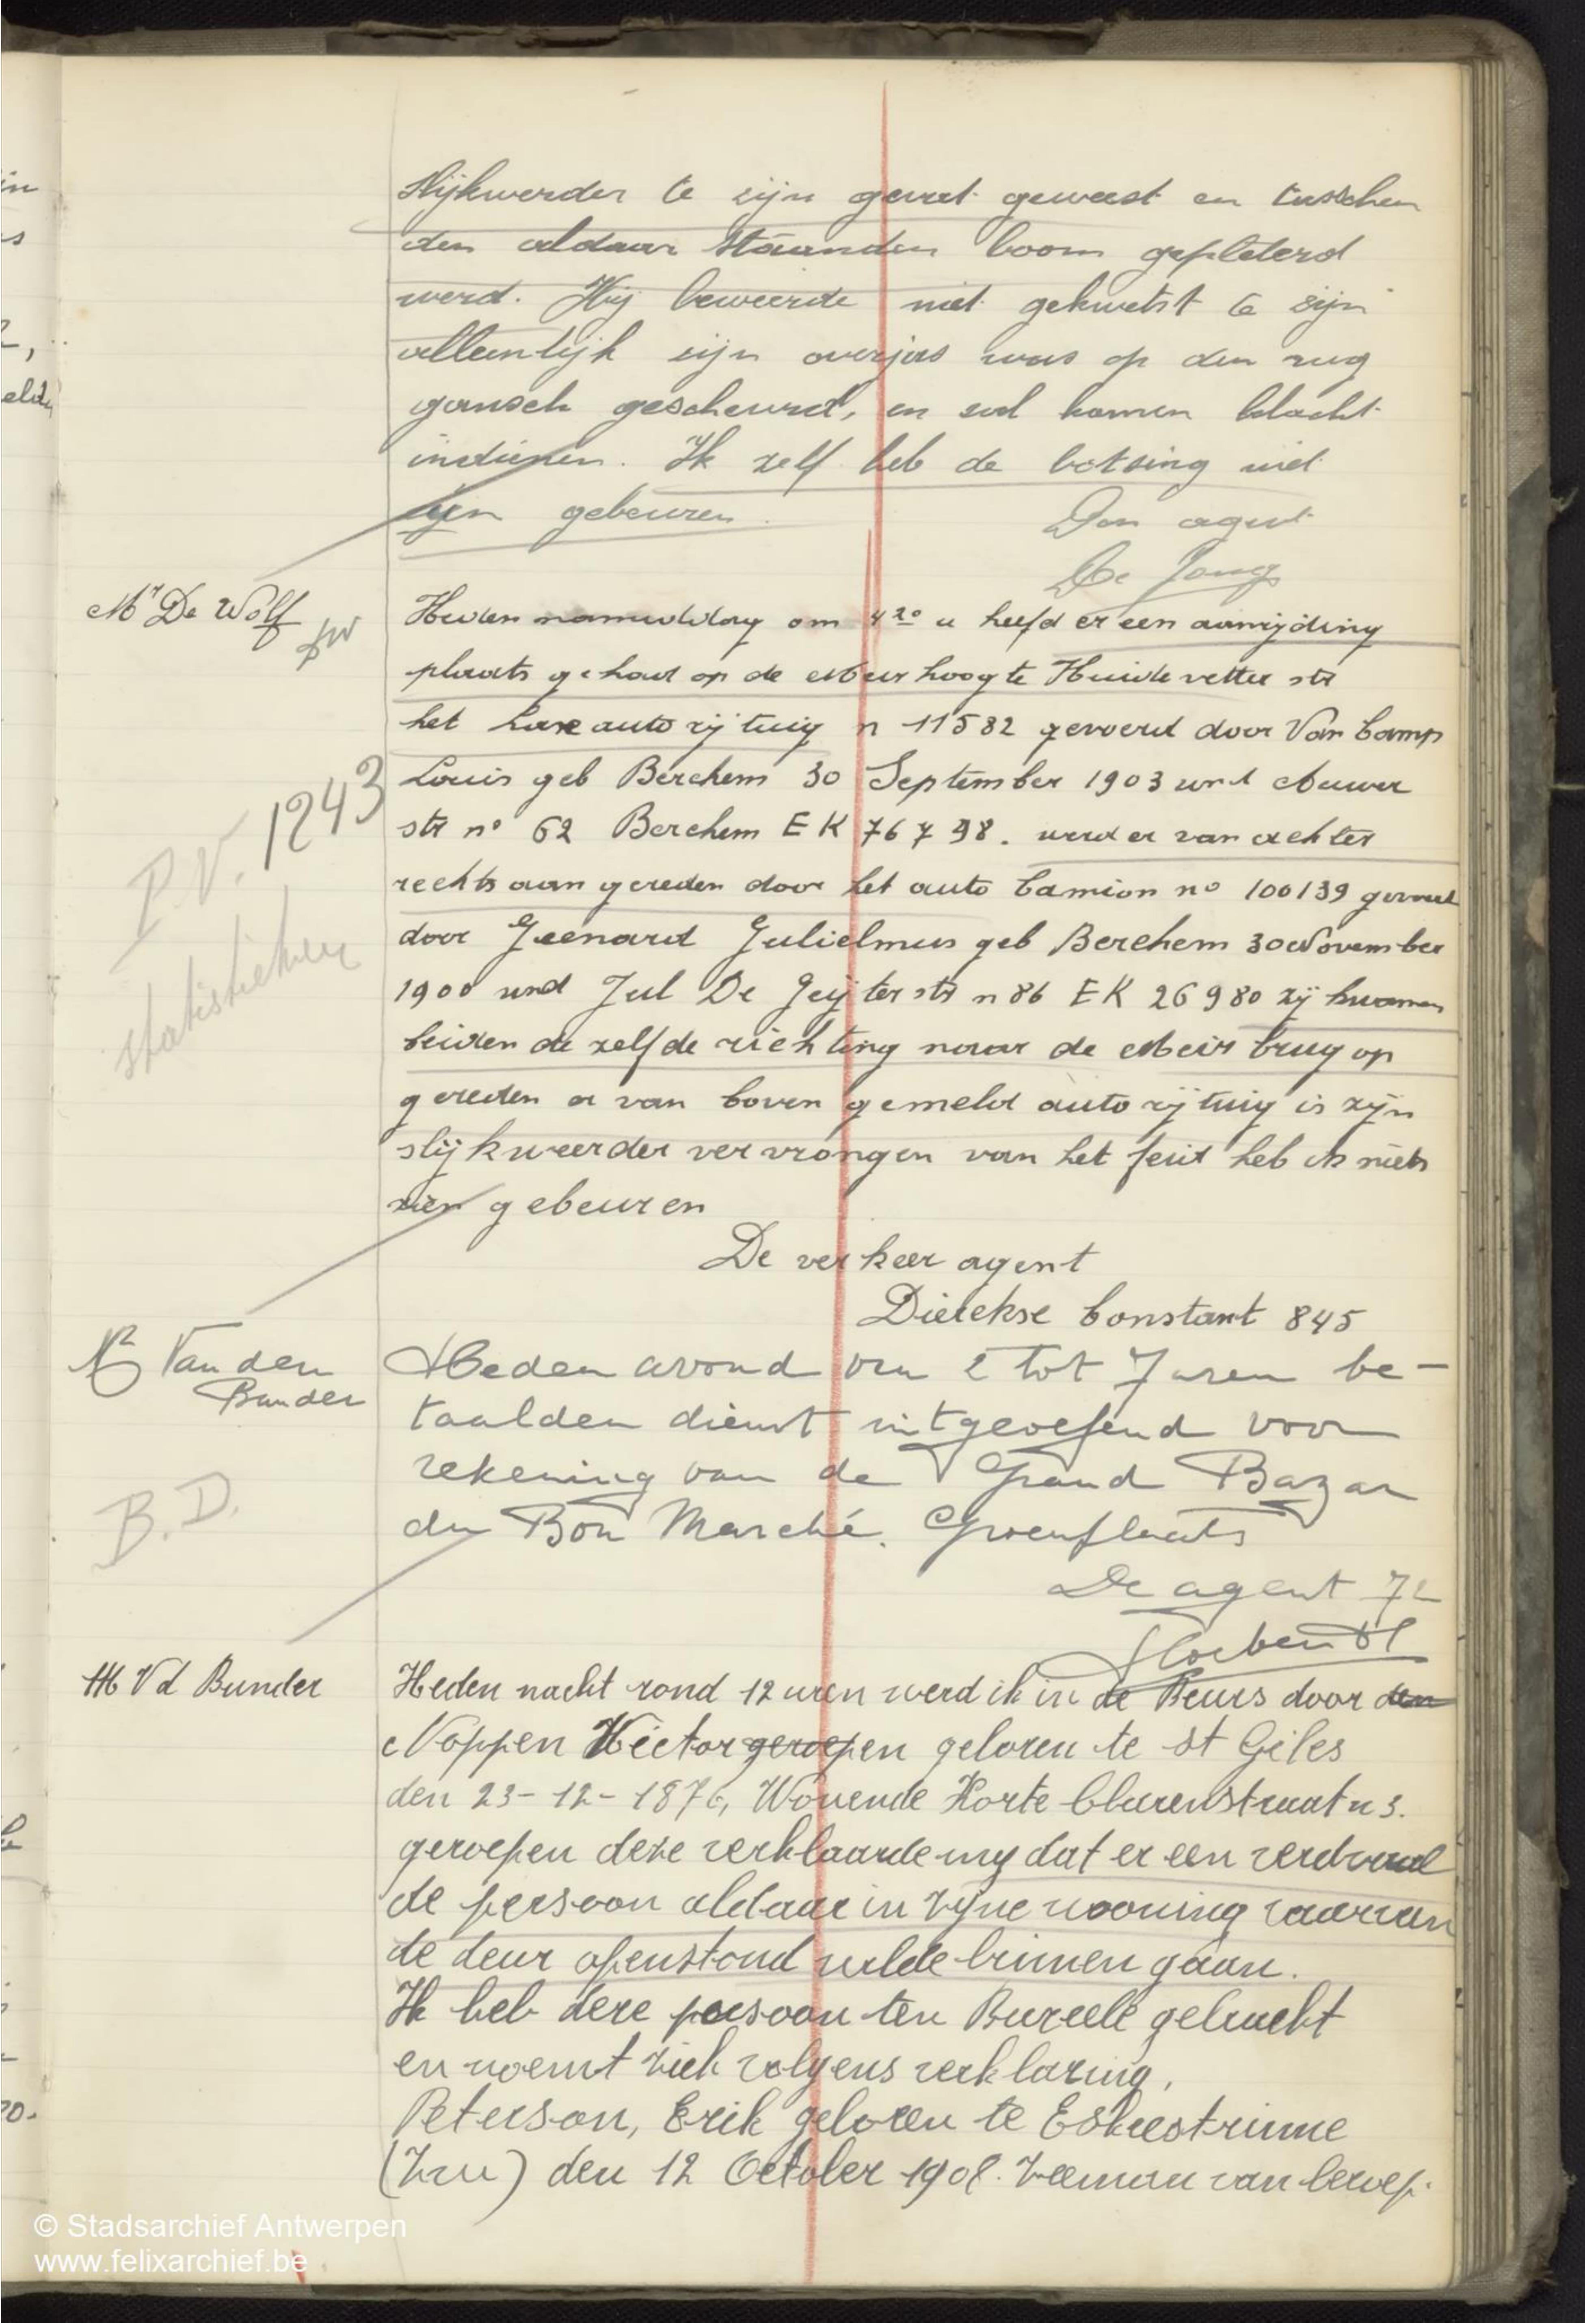 slijkweerder te zijn gevat geweest en tusschen
den aldaar staanden boom gepleterd
werd. Hij beweerde niet gekwetst te zijn
alleenlijk zijn overjas was op den rug
gansch gescheurd, en zal komen klacht
indienen. Ik zelf heb de botsing niet
zien gebeuren.
Den agent
De Jong
Mr De Wolf
Heden namiddag om 4 20 u heefd er een aanrijding
plaats gehad op de Meir hoogte Huidevetter str
het luxe auto rijtuig n 11582 gevoerd door Van Camp
Louis geb Berchem 30 September 1903 wnd Nauwer
str n° 62 Berchem E K 76798. werd er van achter
rechts aan gereden door het auto Camion n° 100139 gevoerd
P.V. 1243
statistieken
door Geenard Gulielmus geb Berchem 30 November
1900 wnd Jul De Geijter str n 86 E K 26980 zij kwamen
beiden de zelfde richting naar de Meir brug op
gereden en van boven gemeld auto rijtuig is zijn
slijkweerder vervrongen van het feit heb ik niets
zien gebeuren
De verkeer agent
Dierckse Constant 845
Mr Van den
Bunder
Heden avond van 2 tot 7 uren be-
taalden dienst uitgeoefend voor
rekening van de Grand Bazar
du Bon Marché. Groenplaats
B.D.
De agent 72
M Vd Bunder
Heden nacht rond 12 uren werd ik in de Beurs door den
Noppen Hector geroepen geboren te St Giles
den 23-12-1876, Wonende Korte Clarenstraat n 3.
geroepen deze verklaarde my dat er een verdwaal
de persoon aldaar in zijne wooning waarvan
de deur openstond wilde binnen gaan.
Ik heb deze persoon ten Bureele gebracht
en noemt zich volgens verklaring,
Peterson, Erik geboren te Eskeestrinne
den 12 October 1908. Zeeman van beroep.
© Stadsarchief Antwerpen
www.felixarchief.be